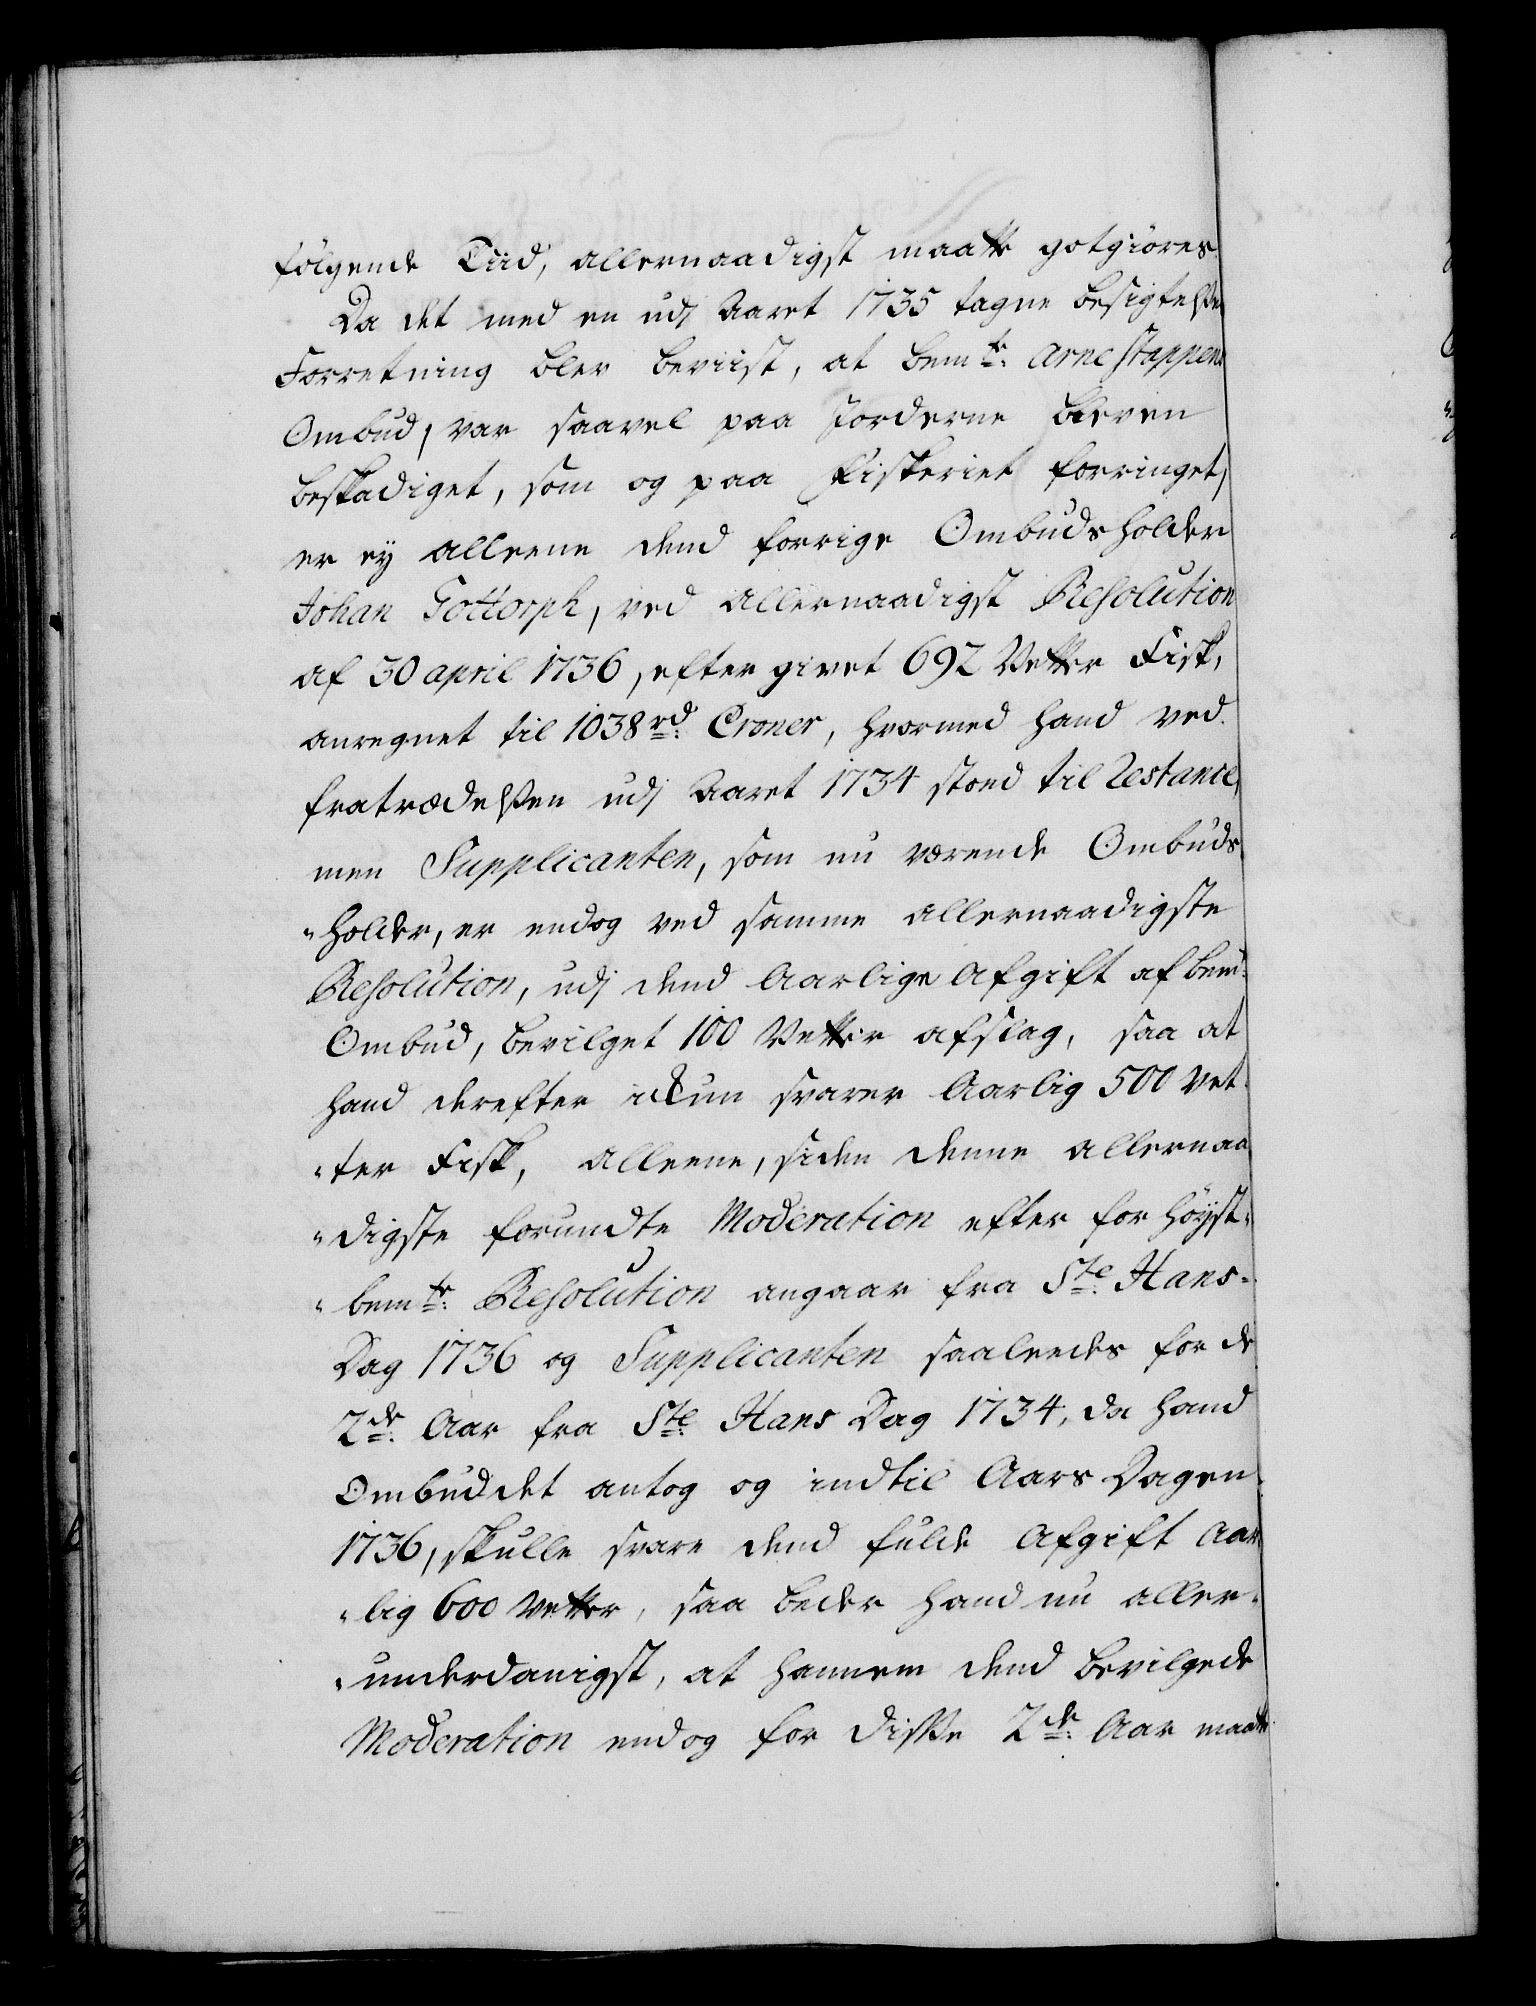 følgende Tiid, allernaadigst maatte gotgiøres.
Da det med en udj Aaret 1735 tagne besigtelses
Forretning blev beviist, at bemte: Arne Stappens
Ombud, var saavel paa Jorderne bleven
beskadiget, som og paa Fiskeriet forringet,
er ey alleene dend forrige Ombudsholder
Johan Gottorph, ved allernaadigst Resolution
af 30 april 1736, efter givet 692 Vetter Fisk,
anregnet til 1038 rd: Croner, hvormed hand ved
fratrædelsen udj Aaret 1734 stoed til Restance,
men Supplicanten, som nu værende Ombuds
"holder, er endog ved samme allernaadigste
Resolution, udj dend Aarlige Afgift af bem:
Ombud, bevilget 100 Vetter afslag, saa at
hand derefter ickun svarer Aarlig 500 Vet-
"ter Fisk, alleene, siden denne allernaa
"digste forundte Moderation efter for høyst-
"bemte: Resolution angaar fra Ste: Hans-
Dag 1736 og Supplicanten saaleedes for de
2de: Aar fra Ste: Hans Dag 1734, da hand
Ombuddet antog og indtil Aars Dagen
1736, skulle svare dend fulde Afgift Aar
"lig 600 Vetter, saa beder hand nu aller-
"underdanigst, at hannem dend bevilgede
Moderation endog for disse 2de: Aar maatte